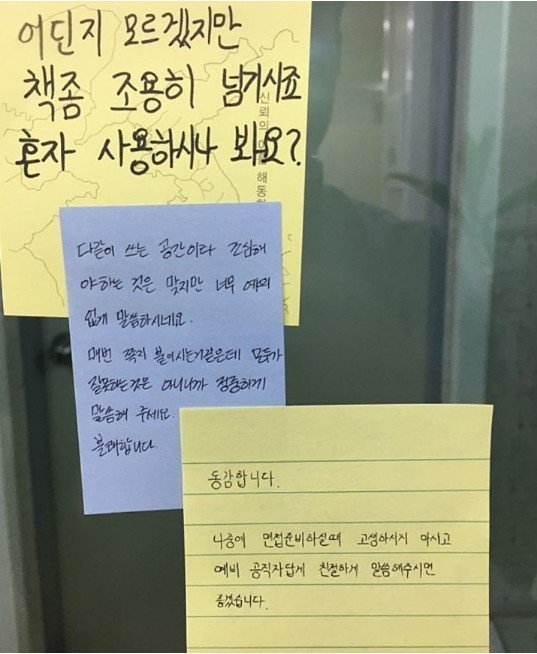 어딘지 모르겠지만
책좀 조용히 넘기시죠
혼자 사용하시나 봐요?
신뢰의
해동
다같이 쓰는 공간이다 조심해
야하는 것은 맞지만 너무 예의
없게 말씀하시네요.
매번 쪽지 붙이시는거같은데 모두가
잘못하는것은 아니니까 정중하게
말씀해 주세요.
불쾌합니다.
동감합니다.
나중에 면접준비하실때 고생하시지 마시고
예비 공직자답게 친절하게 말씀해주시면
좋겠습니다.